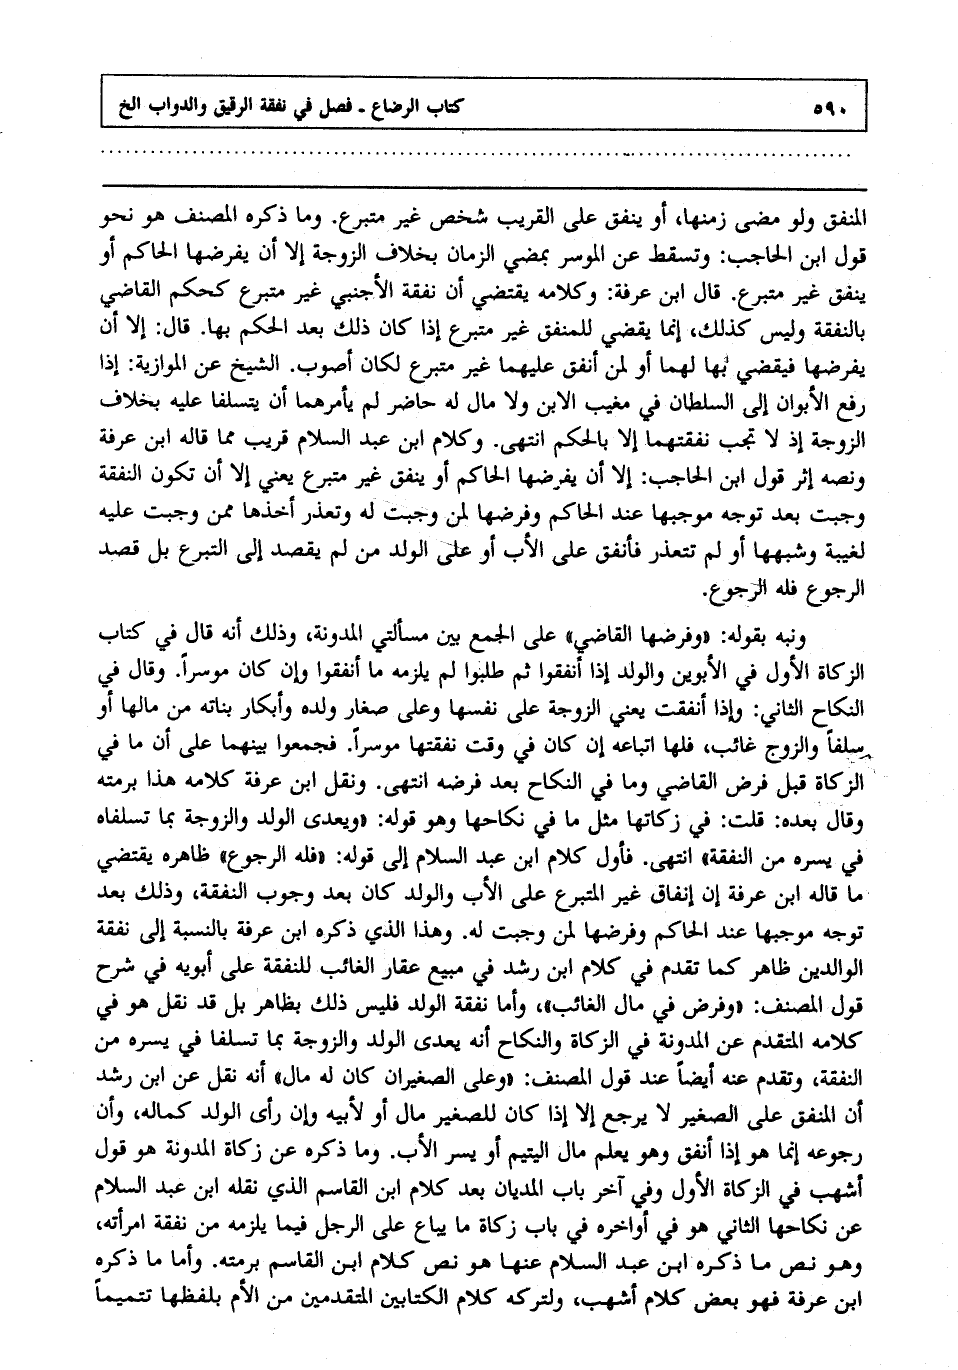 ٥٩٠ كتاب الرضاع ـ فصل في نفقة الرقيق والدواب الخ
المنفق ولو مضى زمنها، أو ينفق على القريب شخص غير متبرع. وما ذكره المصنف هو نحو
قول ابن الحاجب: وتسقط عن الموسر بمضي الزمان بخلاف الزوجة إلا أن يفرضها الحاكم أو
ينفق غير متبرع. قال ابن عرفة: وكلامه يقتضي أن نفقة الأجنبي غير متبرع كحكم القاضي
بالنفقة وليس كذلك، إنما يقضي للمنفق غير متبرع إذا كان ذلك بعد الحكم بها. قال: إلا أن
يفرضها فيقضي بها لهما أو لمن أنفق عليهما غير متبرع لكان أصوب. الشيخ عن الموازية: إذا
رفع الأبوان إلى السلطان في مغيب الابن ولا مال له حاضر لم يأمرهما أن يتسلفا عليه بخلاف
الزوجة إذ لا تجب نفقتهما إلا بالحكم انتهى. وكلام ابن عبد السلام قريب مما قاله ابن عرفة
ونصه إثر قول ابن الحاجب: إلا أن يفرضها الحاكم أو ينفق غير متبرع يعني إلا أن تكون النفقة
وجبت بعد توجه موجبها عند الحاكم وفرضها لمن وجبت له وتعذر أخذها ممن وجبت عليه
لغيبة وشبهها أو لم تتعذر فأنفق على الأب أو على الولد من لم يقصد إلى التبرع بل قصد
الرجوع فله الرجوع.
ونبه بقوله: «وفرضها القاضي» على الجمع بين مسألتي المدونة، وذلك أنه قال في كتاب
الزكاة الأول في الأبوين والولد إذا أنفقوا ثم طلبوا لم يلزمه ما أنفقوا وإن كان موسراً. وقال في
النكاح الثاني: وإذا أنفقت يعني الزوجة على نفسها وعلى صغار ولده وأبكار بناته من مالها أو
سلفاً والزوج غائب، فلها اتباعه إن كان في وقت نفقتها موسراً. فجمعوا بينهما على أن ما في
الزكاة قبل فرض القاضي وما في النكاح بعد فرضه انتهى. ونقل ابن عرفة كلامه هذا برمته
وقال بعده: قلت: في زكاتها مثل ما في نكاحها وهو قوله: «ويعدى الولد والزوجة بما تسلفاه
في يسره من النفقة» انتهى. فأول كلام ابن عبد السلام إلى قوله: «فله الرجوع» ظاهره يقتضي
ما قاله ابن عرفة إن إنفاق غير المتبرع على الأب والولد كان بعد وجوب النفقة، وذلك بعد
توجه موجبها عند الحاكم وفرضها لمن وجبت له. وهذا الذي ذكره ابن عرفة بالنسبة إلى نفقة
الوالدين ظاهر كما تقدم في كلام ابن رشد في مبيع عقار الغائب للنفقة على أبويه في شرح
قول المصنف: «وفرض في مال الغائب»، وأما نفقة الولد فليس ذلك بظاهر بل قد نقل هو في
كلامه المتقدم عن المدونة في الزكاة والنكاح أنه يعدى الولد والزوجة بما تسلفا في يسره من
النفقة، وتقدم عنه أيضاً عند قول المصنف: «وعلى الصغيران كان له مال» أنه نقل عن ابن رشد
أن المنفق على الصغير لا يرجع إلا إذا كان للصغير مال أو لأبيه وإن رأى الولد كماله، وأن
رجوعه إنما هو إذا أنفق وهو يعلم مال اليتيم أو يسر الأب. وما ذكره عن زكاة المدونة هو قول
أشهب في الزكاة الأول وفي آخر باب المديان بعد كلام ابن القاسم الذي نقله ابن عبد السلام
عن نكاحها الثاني هو في أواخره في باب زكاة ما يباع على الرجل فيما يلزمه من نفقة امرأته،
وهو نص ما ذكره ابن عبد السلام عنها هو نص كلام ابن القاسم برمته. وأما ما ذكره
ابن عرفة فهو بعض كلام أشهب، ولتركه كلام الكتابين المتقدمين من الأم بلفظها تتميماً